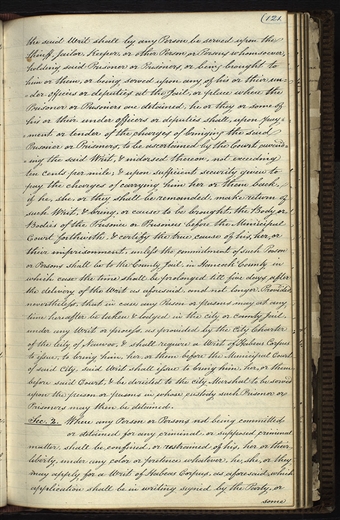 (121.
the said Writ shall by any Person be served upon the
Sheriff, Jailor, Keeper, or other Person or Persons whomsoever,
holding said Prisoner or Prisoners, or being brought to
him or them, or being served upon any of his or their un-
der officers or deputies at the Jail, or place where the
Prisoner or Prisoners are detained, he or they or some of
his or their under officers or deputies shall, upon pay-
ment or tender of the charges of bringing the said
Prisoner or Prisoners, to be ascertained by the Court award-
ing the said Writ, & endorsed thereon, not exceeding
ten cents per mile, & upon sufficient security given to
pay the charges of carrying him her or them back,
if he, she, or they shall be remanded, make return of
such Writ, & bring, or cause to be brought, the Body or
Bodies of the Prisoner or Prisoners before the Municipal
Court forthwith, & certify the true cause of his, her, or
their imprisonment, unless the commitment of such Person
or Persons shall be to the County Jail in Hancock County in
which case the time shall be prolonged till five days after
the delivery of the Writ as aforesaid, and not longer. Provided
nevertheless, that in case any Person or persons may at any
time hereafter be taken & lodged in the city or County Jail,
under any Writ or process, as provided by the City Charter
of the City of Nauvoo, & shall require a Writ of Habeas Corpus
to issue, to bring him, her, or them before the Municipal Court
of said City, said Writ shall issue to bring him, her, or them
before said Court, & be directed to the City Marshal to be served
upon the person or persons in whose custody such Prisoner or
Prisoners may then be detained.
Sec. 2. Where any Person or Persons not being committed
or detained for any criminal, or supposed criminal
matter, shall be confined, or restrained of his, her or their
liberty, under any color or pretence whatever, he, she, or they
may apply for a Writ of Habeas Corpus, as aforesaid, which
application shall be in writing signed by the Party, or
some